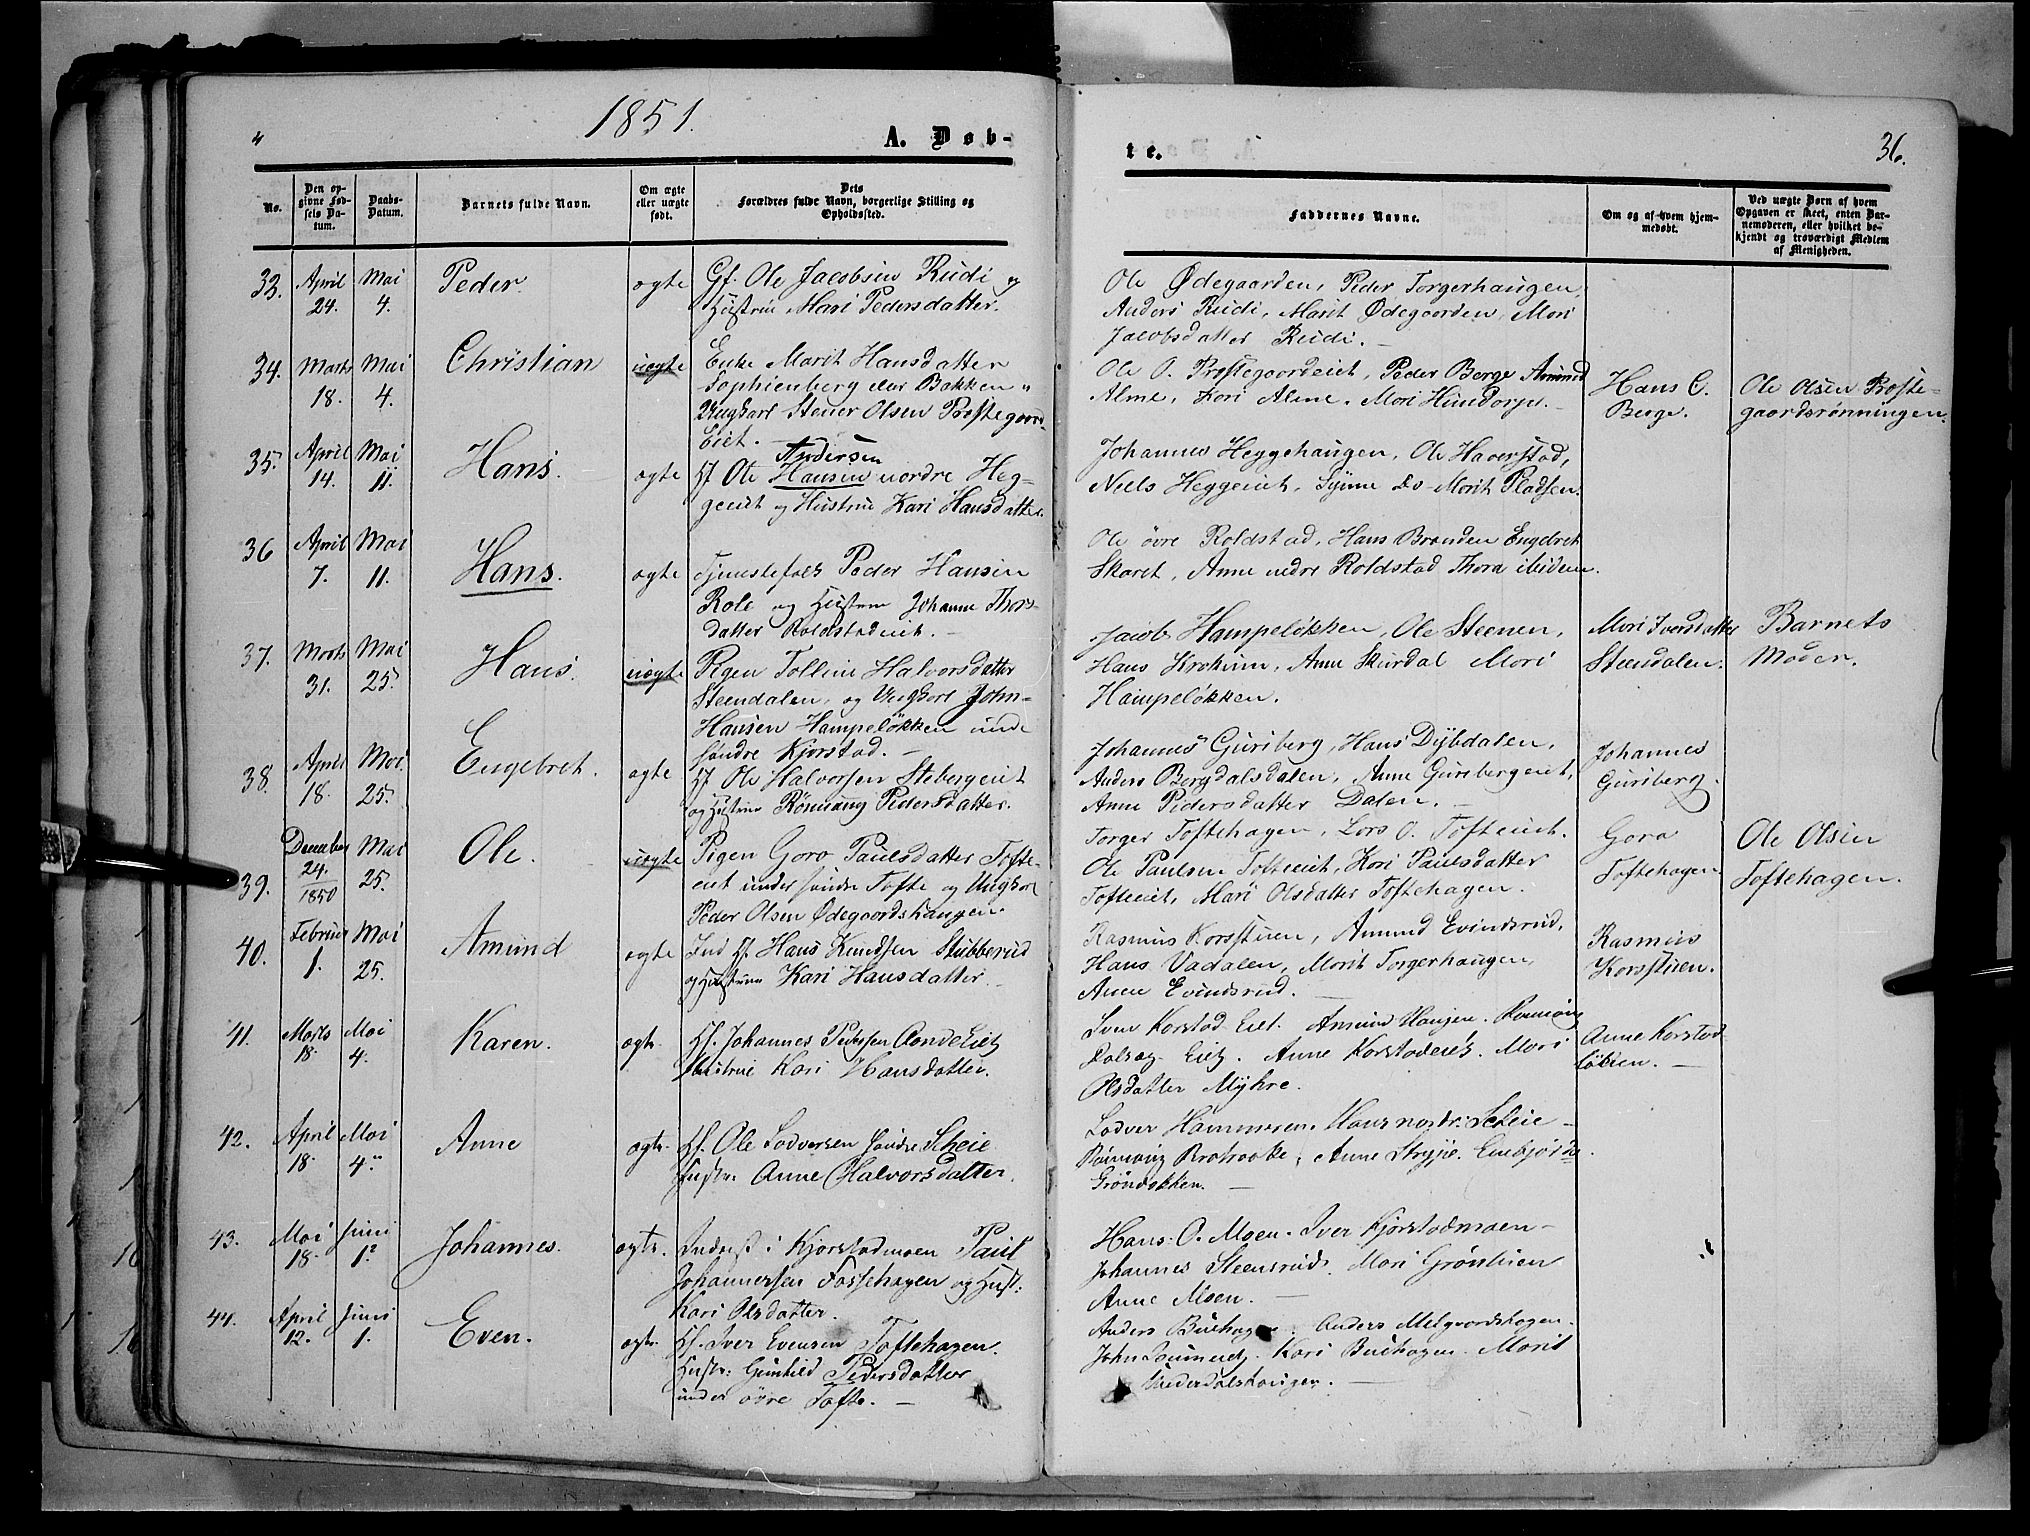 1851.
A. Døb-
No.
Den op-
givne Fød-
sels Da-
tum.
Daabs-
Datum.
Barnets fulde Navn.
Om ægte
eller uægte
født.
Dets
Forældres fulde Navn, borgerlige Stilling og
Opholdssted.
33. April 24. Mai 4. Peder. ægte
Gf. Ole Jacobsen Rudi og
Hustrue Mari Pedersdatter.
34. Marts 18. Mai 4. Christian uægte
Enke Marit Hansdatter
Sophienberg eller Bakken
Ungkarl Stener Olsen Prestegaards-
Eiet.
35. April 14. Mai 11. Hans. ægte
Andersen
Hf Ole Hansen nordre Heg-
geeiet og Hustrue Kari Hansdatter.
36 April 7. Mai 11. Hans. ægte
Tjenestefolk Peder Hansen
Role og Hustrue Johanne Thors-
datter Roldstadeiet.
37. Marts 31. Mai 25. Hans. uægte
Pigen Olline Halvorsdatter
Steendalen, og Ungkarl John
Hansen Hampeløkken unde
søndre Kjorstad.
38. April 18. Mai 25. Engebret. ægte
Hf Ole Halvorsen Stebergeiet
og Hustrue Rønnaug Pedersdatter.
39. December 24. 1850 Mai 25. Ole. uægte
Pigen Goro Paulsdatter Tofte-
eiet under søndre Tofte og Ungkarl
Peder Olsen Ødegaardshaugen.
40. Februar 1. Mai 25. Amund ægte
Ind Hf. Hans Knudsen Stubberud
og Hustrue Kari Hansdatter.
41. Marts 18. Mai 4. Karen. ægte
Hf. Johannes Pedersen
Hustrue Kari Hansdatter.
42. April 18. Mai 4. Anne ægte
Hf. Ole Lodversen søndre Scheie
Hustr. Anne Halvorsdatter.
43. Mai 18. Juni 1. Johannes. ægte.
Inderst i Kjorstadmoen Paul
Johannersen Fossehagen og Hust:
Kari Olsdatter.
44. April 12. Juni 1. Even. ægte.
Hf. Iver Evensen Toftehagen.
Hustr: Gunhild Pedersdatter
under øvre Tofte.
te.
36.
Faddernes Navne.
Om og af hvem hjem-
medøbt.
Ved uægte Børn af hvem
Opgaven er skeet, enten Bar-
nemoderen, eller hvilket be-
kjendt og troværdigt Medlem
af Menigheden.
Ole Ødegaarden, Peder Torgerhaugen,
Anders Rudi, Marit Ødegaarden, Mari
Jacobsdatter Rudi.
Ole O. Prestegaardeiet, Peder Berge Amund
Alme, Kari Alme. Mari Hundorpe.
Hans C.
Berge.
Ole Olsen Preste-
gaardsrønningen.
Johannes Heggehaugen, Ole Haverstad,
Niels Heggeeiet, Synne Do Marit Pladsen.
Ole øvre Roldstad, Hans Branden Engebret
Skaret, Anne nedre Roldstad Thora
Jacob Hampeløkken, Ole Steenen,
Hans Krokuum, Anne Skurdal Mari
Hampeløkken.
Mari Iversdatter
Steendalen.
Barnets
Moder.
Johannes Guriberg, Hans Dybdalen,
Anders Bergdalsdalen, Anne Guribergeiet,
Anne Pedersdatter Dalen.
Johannes
Guriberg.
Torger Toftehagen, Lars O. Tofteeiet.
Ole Paulsen Tofteeiet, Kari Paulsdatter
Tofteeiet, Mari Olsdatter Toftehagen.
Goro
Toftehagen
Ole Olsen
Toftehagen.
Rasmus Korsstuen, Amund Evindsrud,
Hans Vadalen, Marit Torgerhaugen,
Anne Evindsrud.
Rasmus
Korsstuen.
Iver Korstad Eiet. Amund Haugen. Rønnaug
Anne Korstadeiet. Mari
Olsdatter Myhre.
Anne Korstad-
Lodver Hammeren. Hans nordr: Scheie
Rønnaug Anne Stryje.
Grønløkken.
Hans O. Moen. Iver Kjorstadmoen
Johannes Steensrud. Mari Grønstuen
Anne Moen.
Anders Buehagen. Anders Melgaardshagen.
John Kari Buehagen. Marit